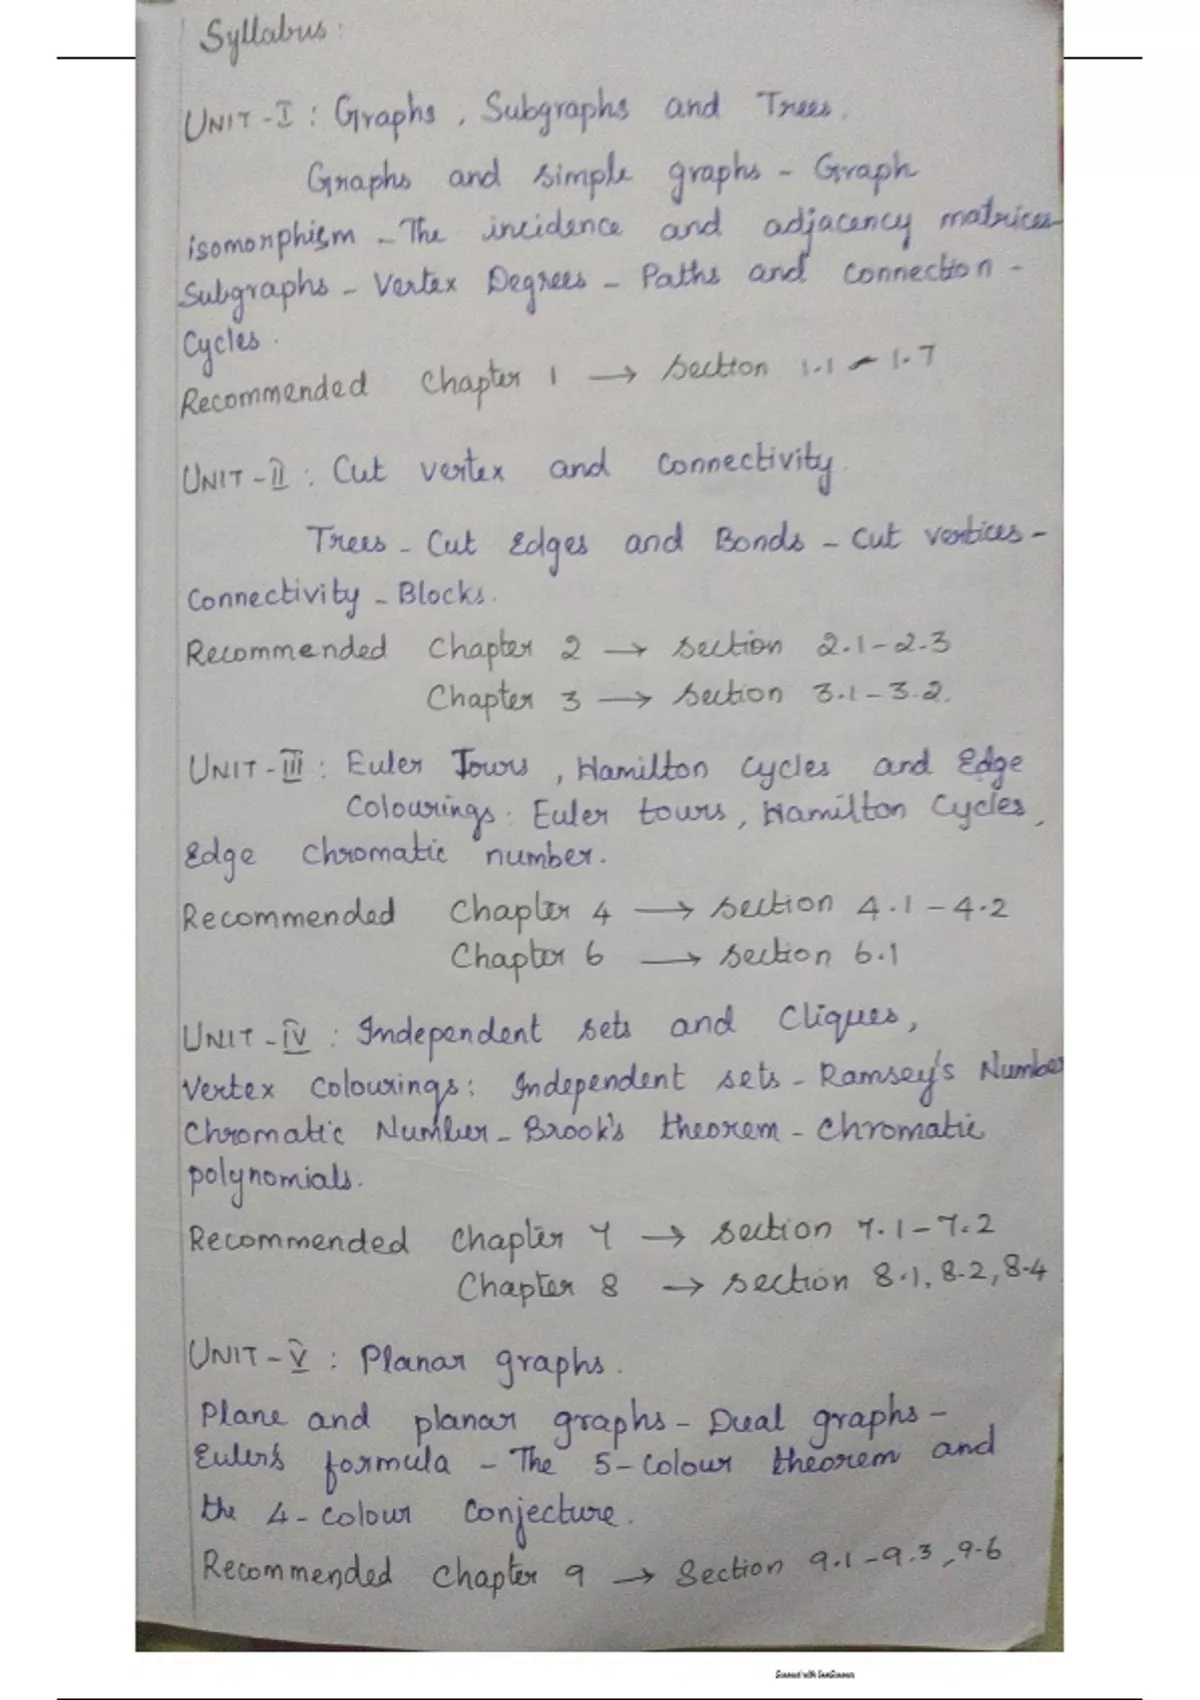 Syllabus:
UNIT-I : Graphs, Subgraphs and Trees.
Graphs and simple graphs - Graph
isomorphism - The incidence and adjacency matrices
Subgraphs - Vertex Degrees - Paths and connection -
Cycles.
Recommended Chapter 1 → section 1.1 - 1.7
UNIT-II : Cut vertex and connectivity.
Trees - Cut Edges and Bonds - cut vertices -
Connectivity - Blocks.
Recommended Chapter 2 → section 2.1-2.3
Chapter 3 → section 3.1-3.2.
UNIT-III : Euler Tours, Hamilton cycles and Edge
Colourings: Euler tours, Hamilton Cycles,
Edge chromatic number.
Recommended Chapter 4 → section 4.1-4.2
Chapter 6 → section 6.1
UNIT-IV : Independent sets and Cliques,
Vertex Colourings: Independent sets - Ramsey's Number
Chromatic Number - Brook's theorem - Chromatic
polynomials.
Recommended Chapter 7 → section 7.1-7.2
Chapter 8 → section 8.1, 8.2, 8.4
UNIT-V : Planar graphs.
Plane and planar graphs - Dual graphs -
Euler's formula - The 5-colour theorem and
the 4-colour Conjecture.
Recommended Chapter 9 → Section 9.1-9.3, 9.6
Scanned with CamScanner